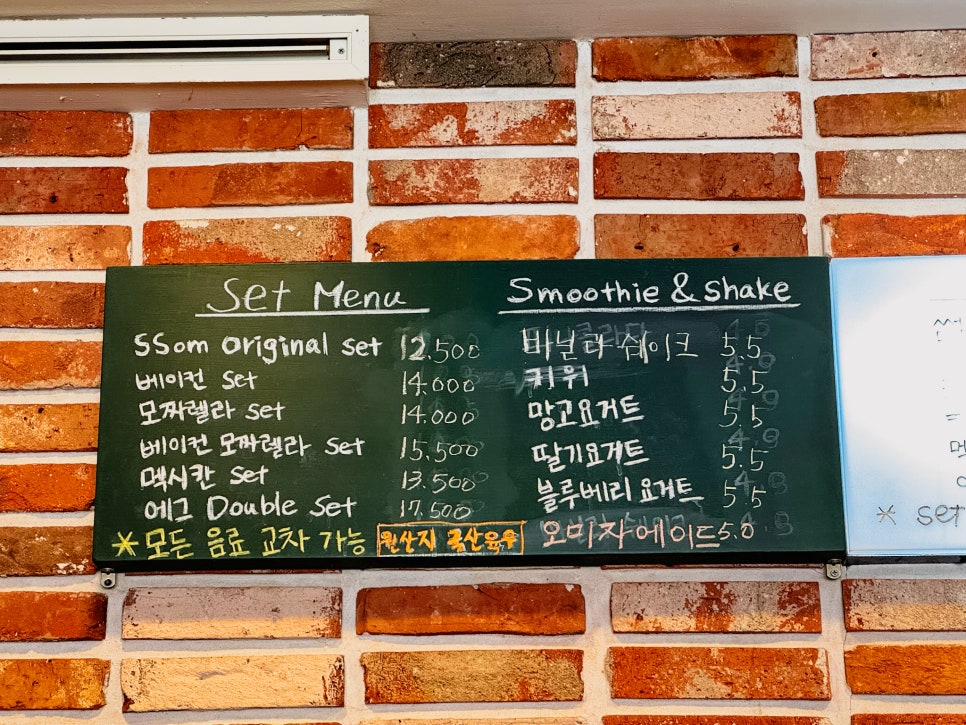 Set Menu
SSom Original Set 12.500
베이컨 Set 14.000
모짜렐라 Set 14.000
베이컨 모짜렐라 Set 15.500
멕시칸 Set 13.500
에그 Double Set 17.500
* 모든 음료 교차 가능
원산지 국산육우
Smoothie & Shake
바닐라 쉐이크 5.5
키위 5.5
망고요거트 5.5
딸기요거트 5.5
블루베리 요거트 5.5
오미자에이드 5.0
* set